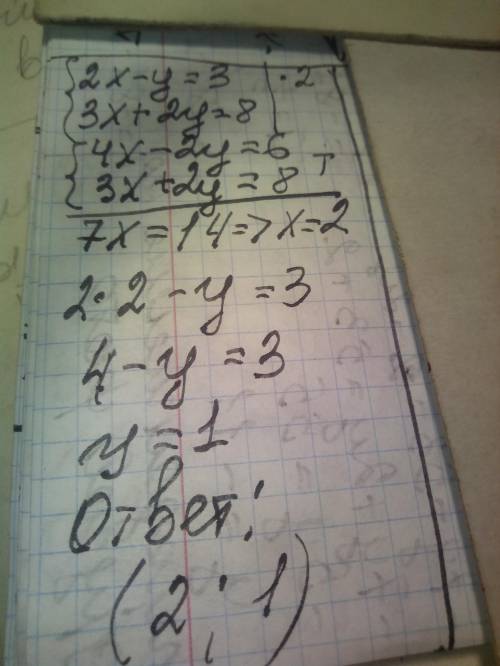 2x-y=3 |·2
3x+2y=8
4x-2y=6 +
3x+2y=8
7x=14=>x=2
2·2-y=3
4-y=3
y=1
Ответ:
(2;1)